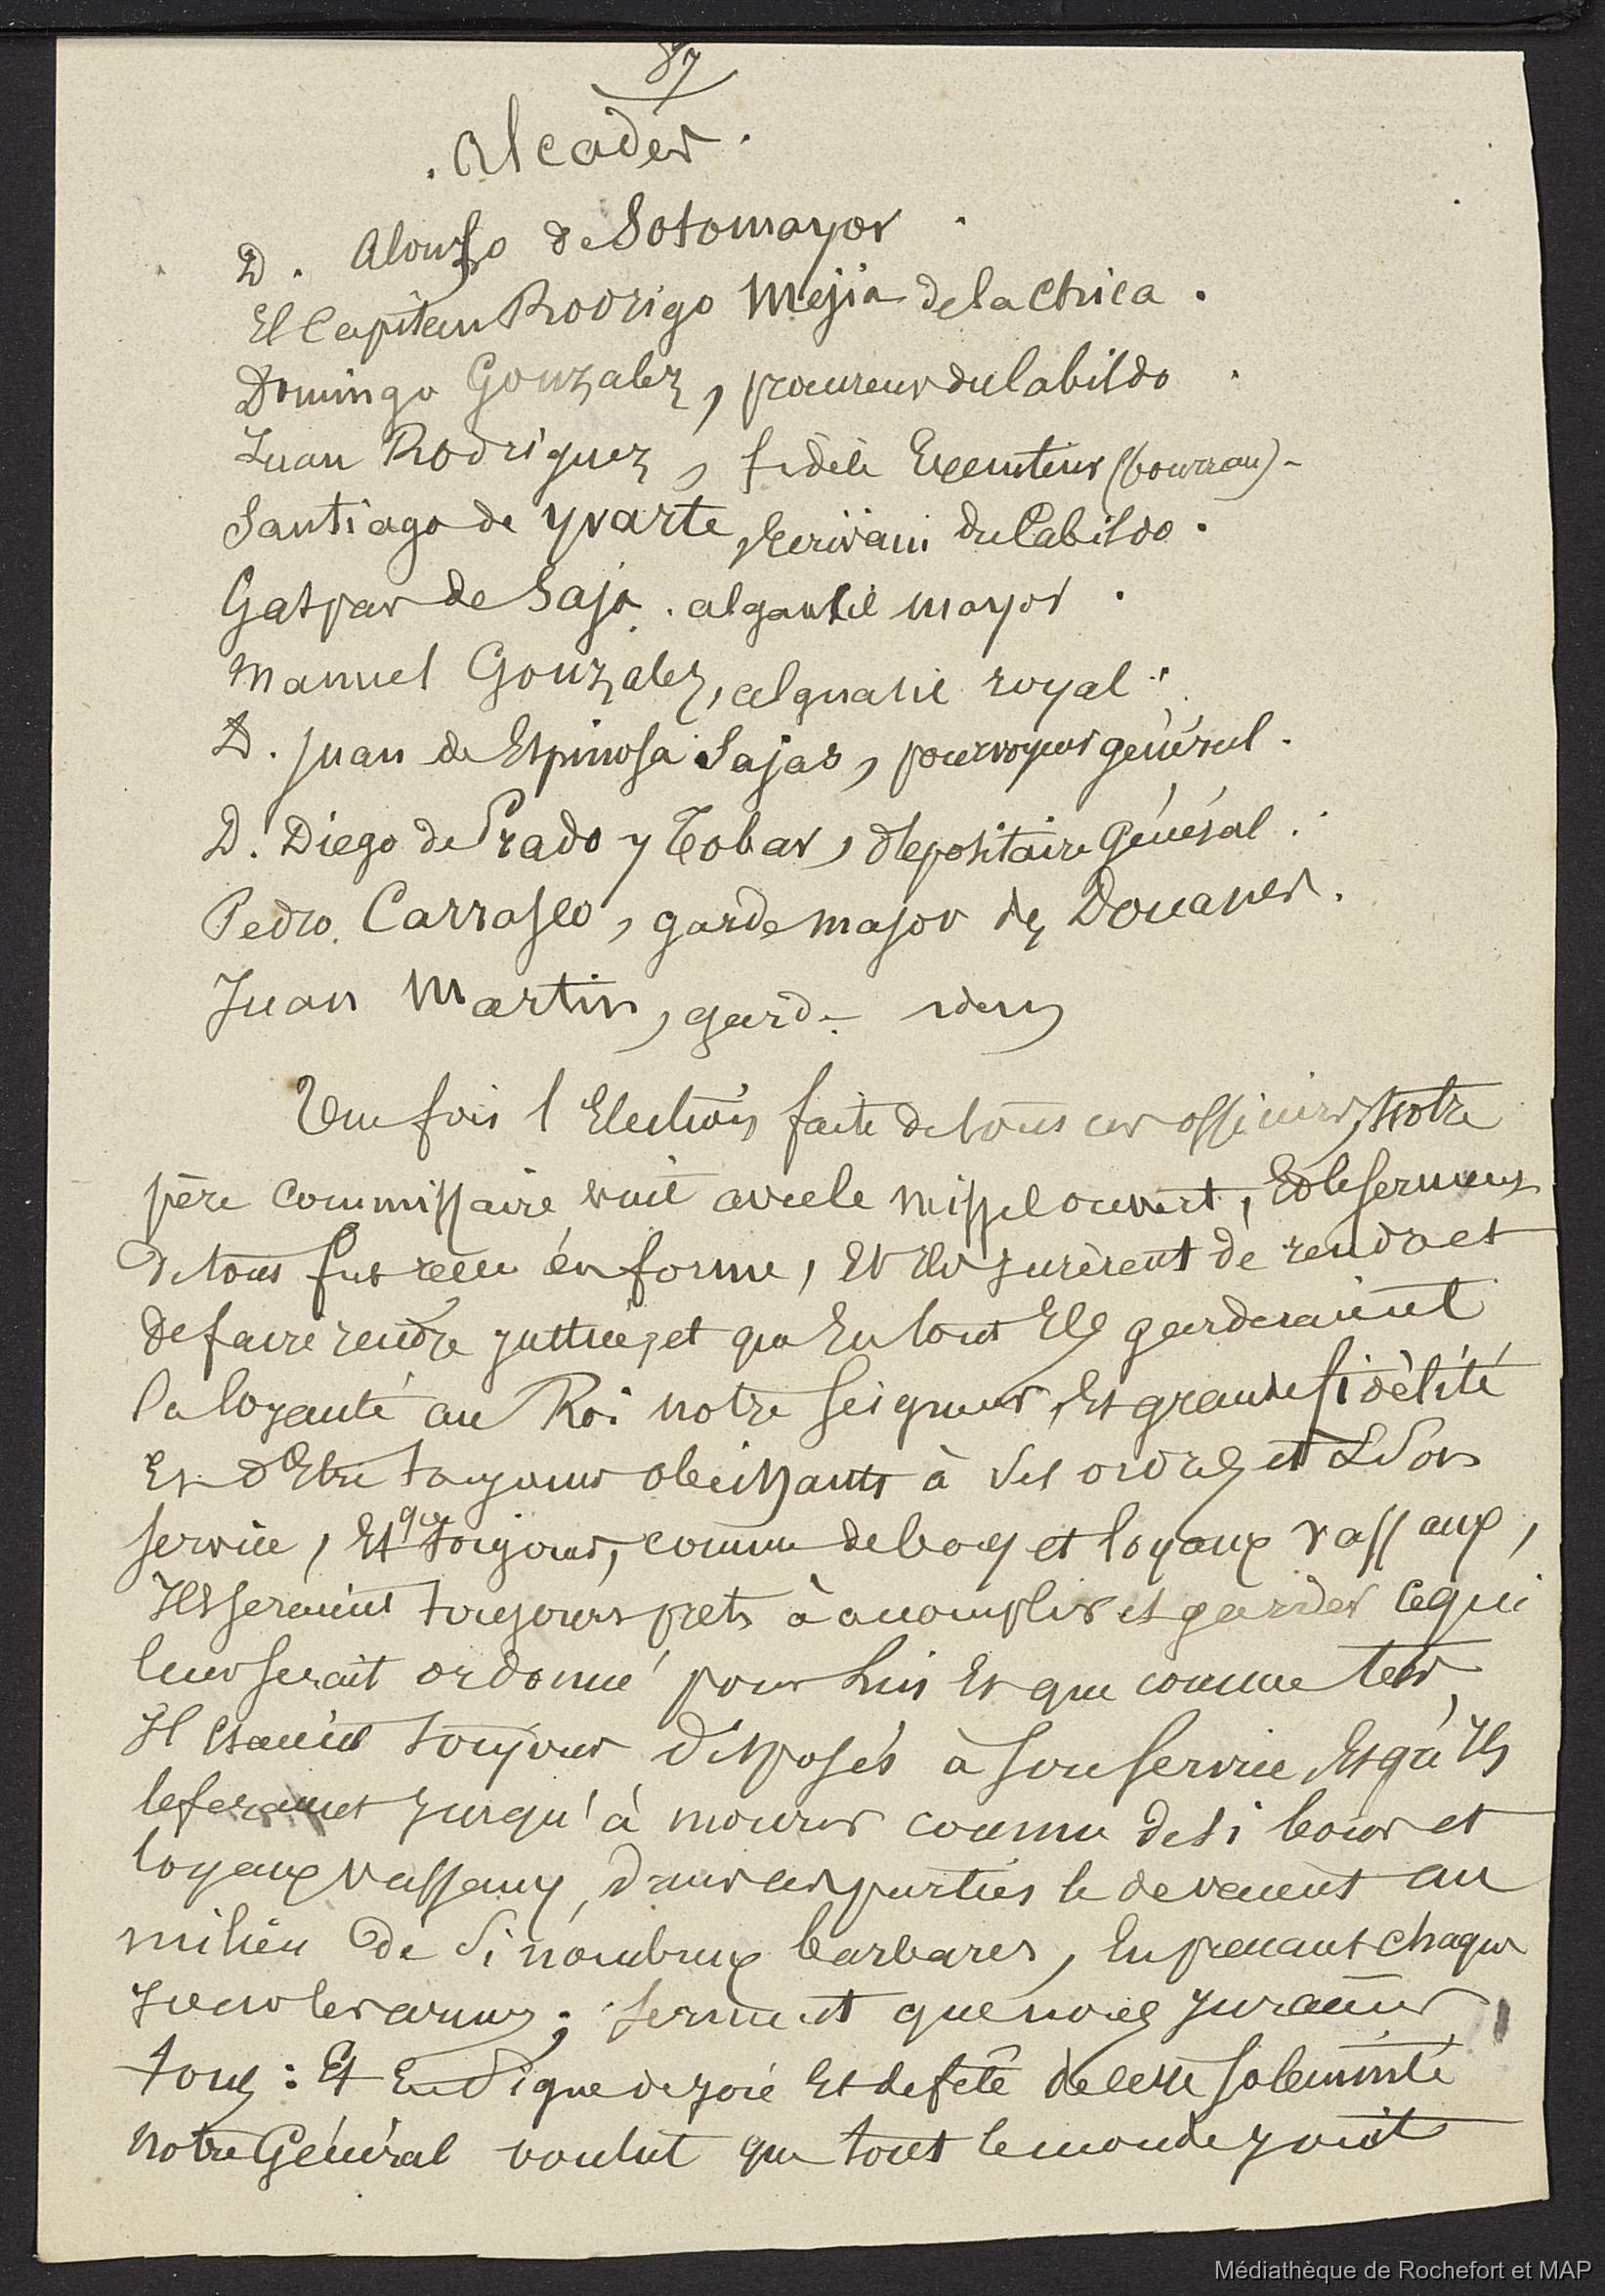 87
. Alcades .
D. Alonzo de Sotomayor .
El Capitan Rodrigo Mejia de la Chica .
Domingo Gonzalez, procureur du Cabildo .
Juan Rodriguez, fidèle Executeur (bourreau) -
Santiago de Yvarte, Ecrivain du Cabildo .
Gaspar de Saja . algauzil mayor .
Manuel Gonzalez, alguasil royal .
D. Juan de Espinosa Sajas, pourvoyeur général .
D. Diego de Prado y Tobar, depositaire Général .
Pedro Carrasco, garde major des Douanes .
Juan Martin, garde idem
Une fois l'Election faite de tous ces officiers, notre
père commissaire vint avec le missel ouvert, Et le serment
de tous fut reçu en forme, Et Ils jurèrent de rendre et
de faire rendre justice, et qu'En tout Ils garderaient
la loyauté au Roi notre Seigneur, Et grande fidèlité
Et d'Etre toujours obeissants à ses ordres et à son
service, Et que toujours, comme de bons et loyaux vassaux,
Ils seraient toujours prets à accomplir et garder ce qui
leur serait ordonné pour Lui Et que comme tels,
Ils étaient toujours disposés à son service Et qu'Ils
le feraient jusqu'à mourir comme de si bons et
loyaux vassaux, dans ces parties le devaient au
milieu de si nombreux barbares, En prenant chaque
jour les armes ; serment que nous jurames
tous : Et En signe de joie Et de fête de cette solemnité
notre Général voulut que tout le monde